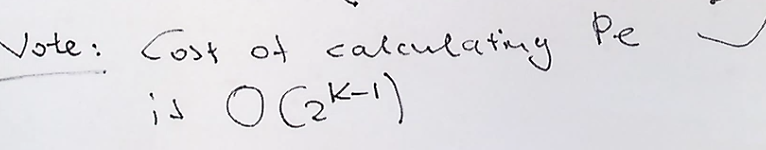 Note: Cost of calculating Pe
is O(2^{K-1})